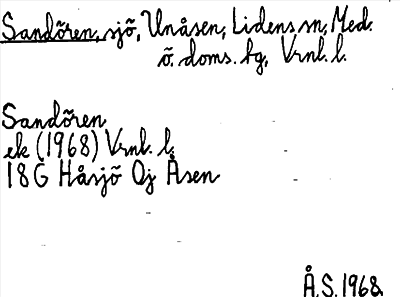 Sandören, sjö, Unåsen, Lidens sn, Med.
ö. doms. hg, Vrnl. l.
Sandören
ek (1968) Vrnl. l.
18G Håsjö 0j Åsen
Å.S. 1968